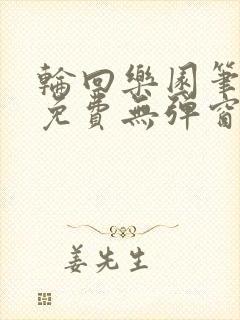 輪回樂園筆
免費無彈窗
姜先生